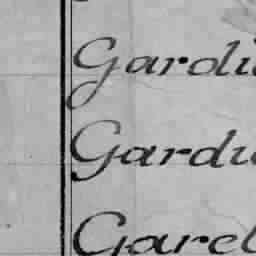 Gardi
Gardi
Gard